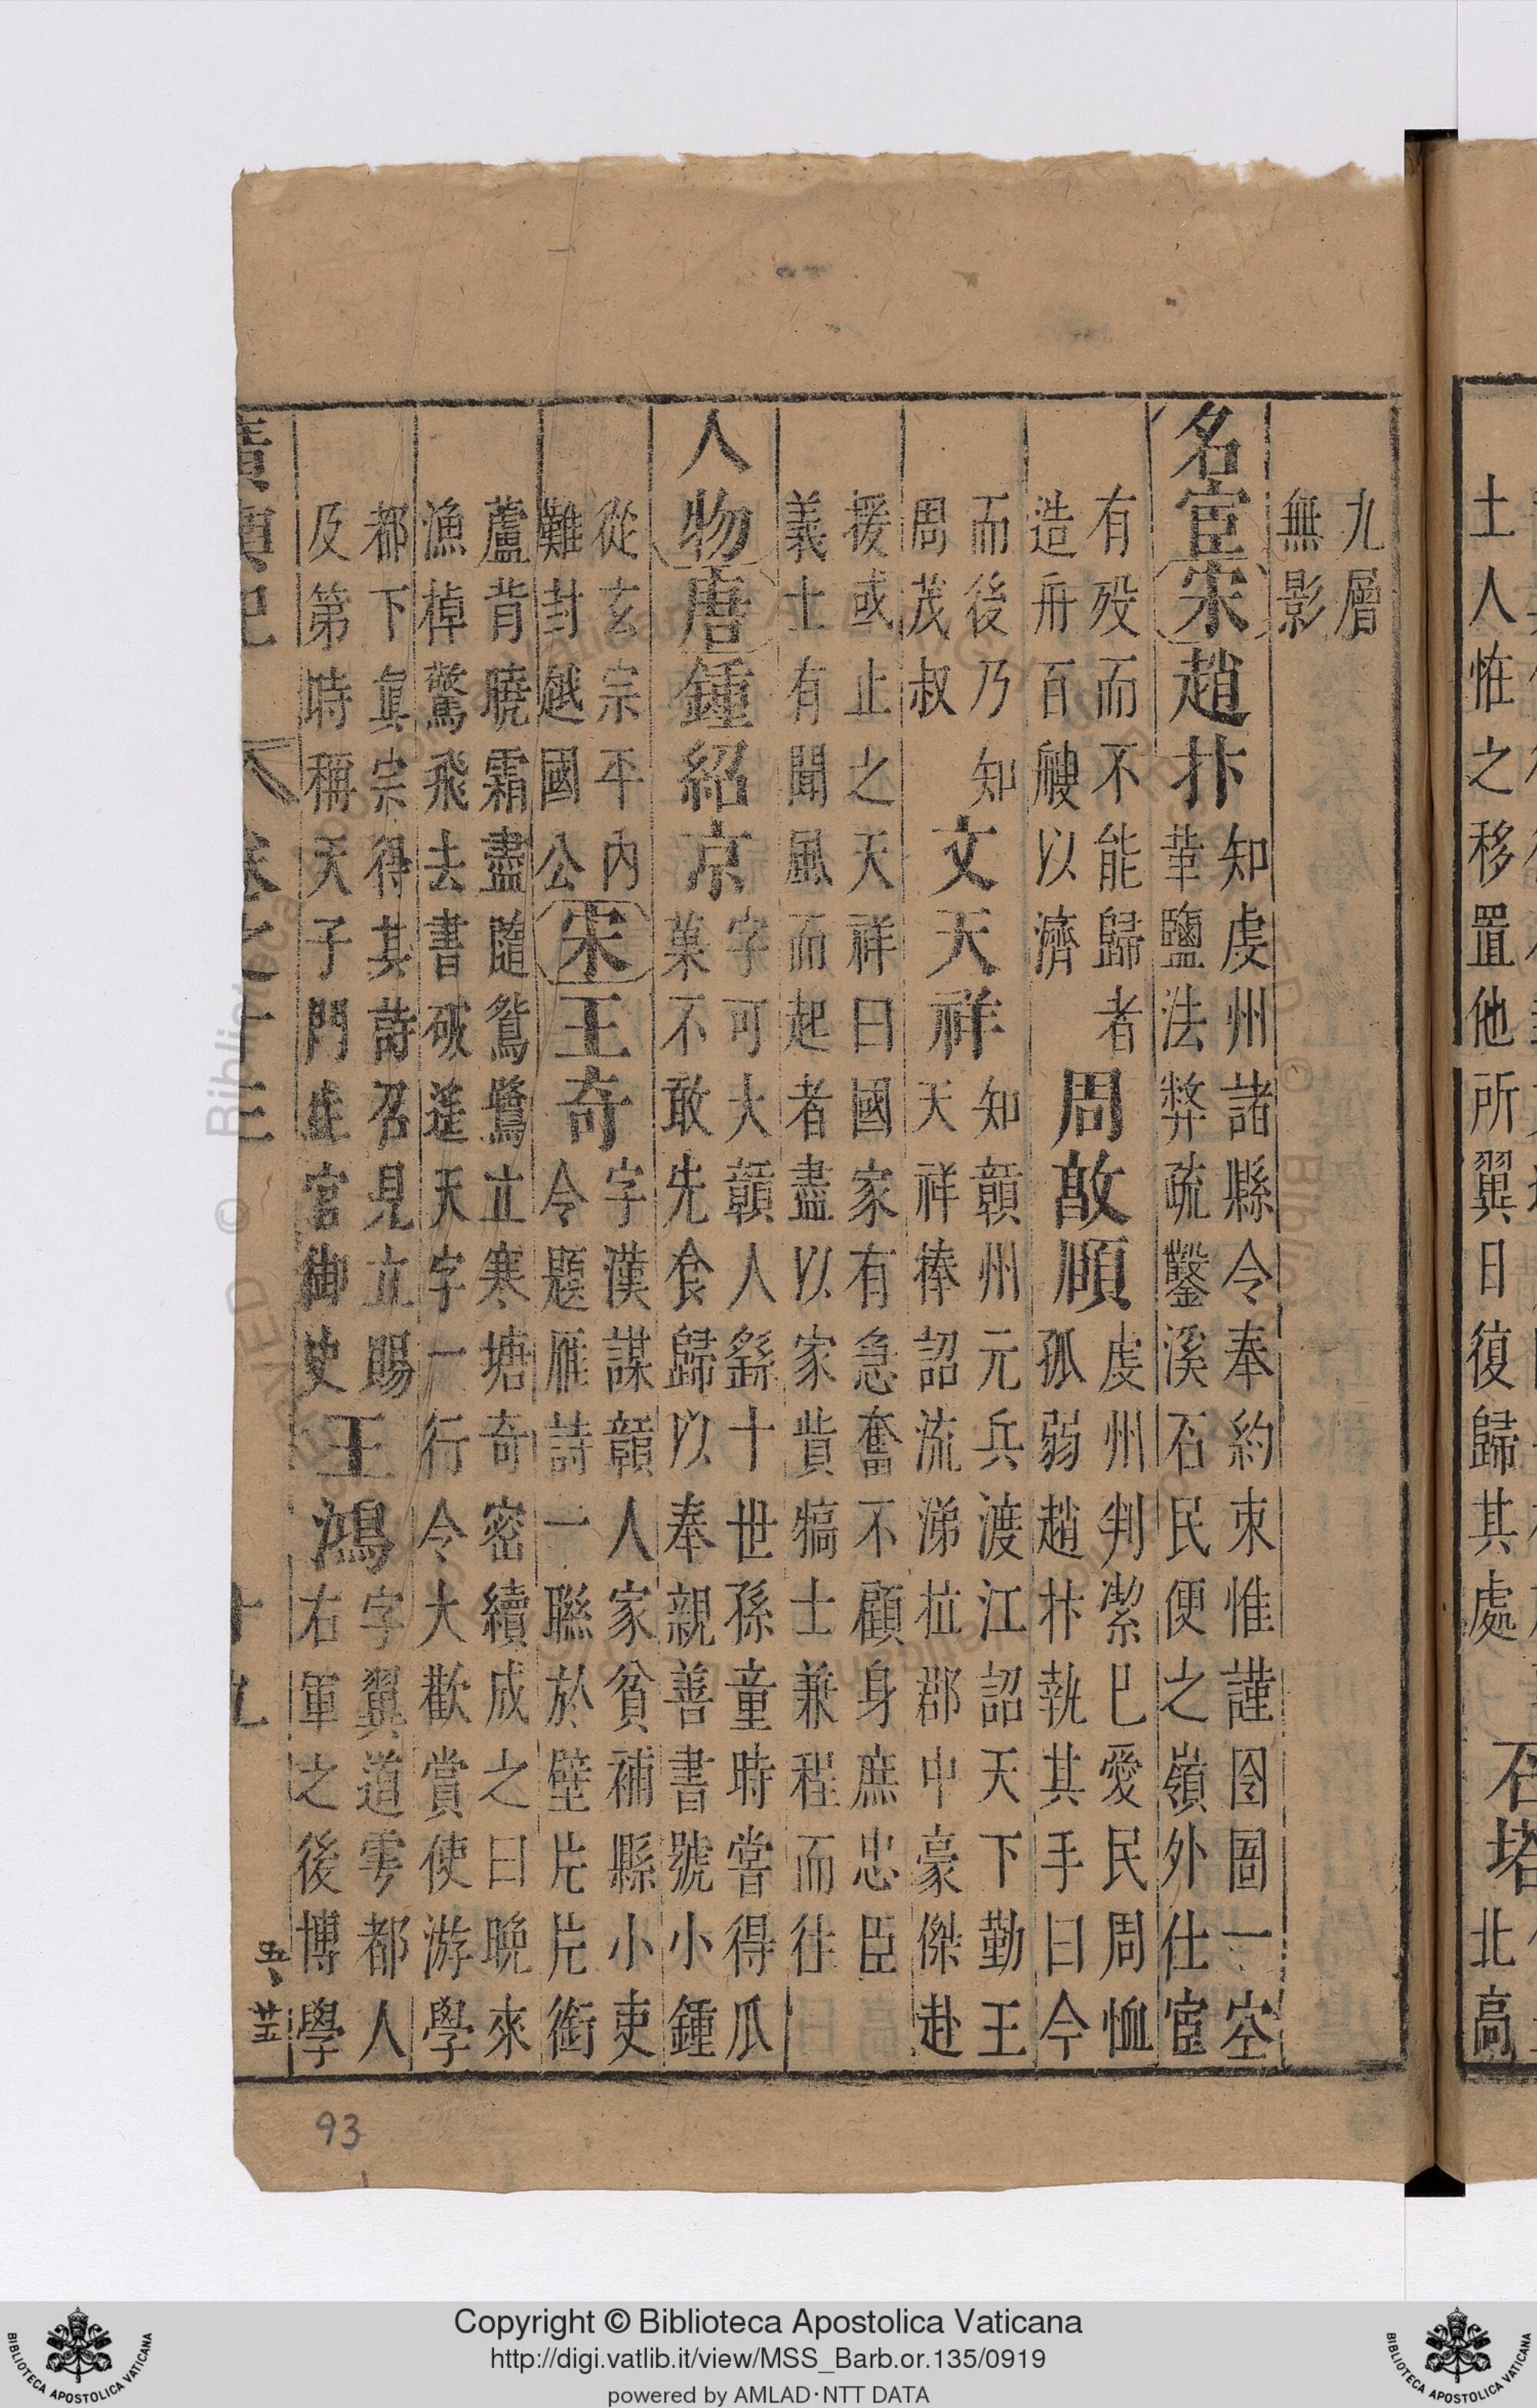 土人恠之移置他所翼日復歸其處 石塔 北高
九層
無影
名宦 宋 趙抃
知虔州諸縣令奉約束惟謹囹圄一空
革鹽法弊疏鑿溪石民便之嶺外仕宦
有歿而不能歸者
造舟百艘以濟
周敦頤
虔州判絜巳愛民周恤
孤弱趙抃執其手曰今
而後乃知
周茂叔
文天祥
知贛州元兵渡江詔天下勤王
天祥捧詔流涕郡中豪傑赴
援或止之天祥曰國家有急奮不顧身庶忠臣
義士有聞風而起者盡以家貲犒士兼程而往
人物 唐 鍾紹京
字可大贛人繇十世孫童時嘗得瓜
菓不敢先食歸以奉親善書號小鍾
從玄宗平內
難封越國公
宋 王奇
字漢謀贛人家貧補縣小吏
令題雁詩一聯於壁片片銜
蘆背曉霜盡隨鴛鷺立寒塘奇密續成之曰晚來
漁棹驚飛去書破遙天字一行令大歡賞使游學
都下眞宗得其詩召見立賜
及第時稱天子門生官御史
王鴻
字翼道雩都人
右軍之後博學
廣輿記 卷之十三 十九
93
Copyright © Biblioteca Apostolica Vaticana
http://digi.vatlib.it/view/MSS_Barb.or.135/0919
powered by AMLAD·NTT DATA
BIBLIOTECA APOSTOLICA VATICANA
BIBLIOTECA APOSTOLICA VATICANA